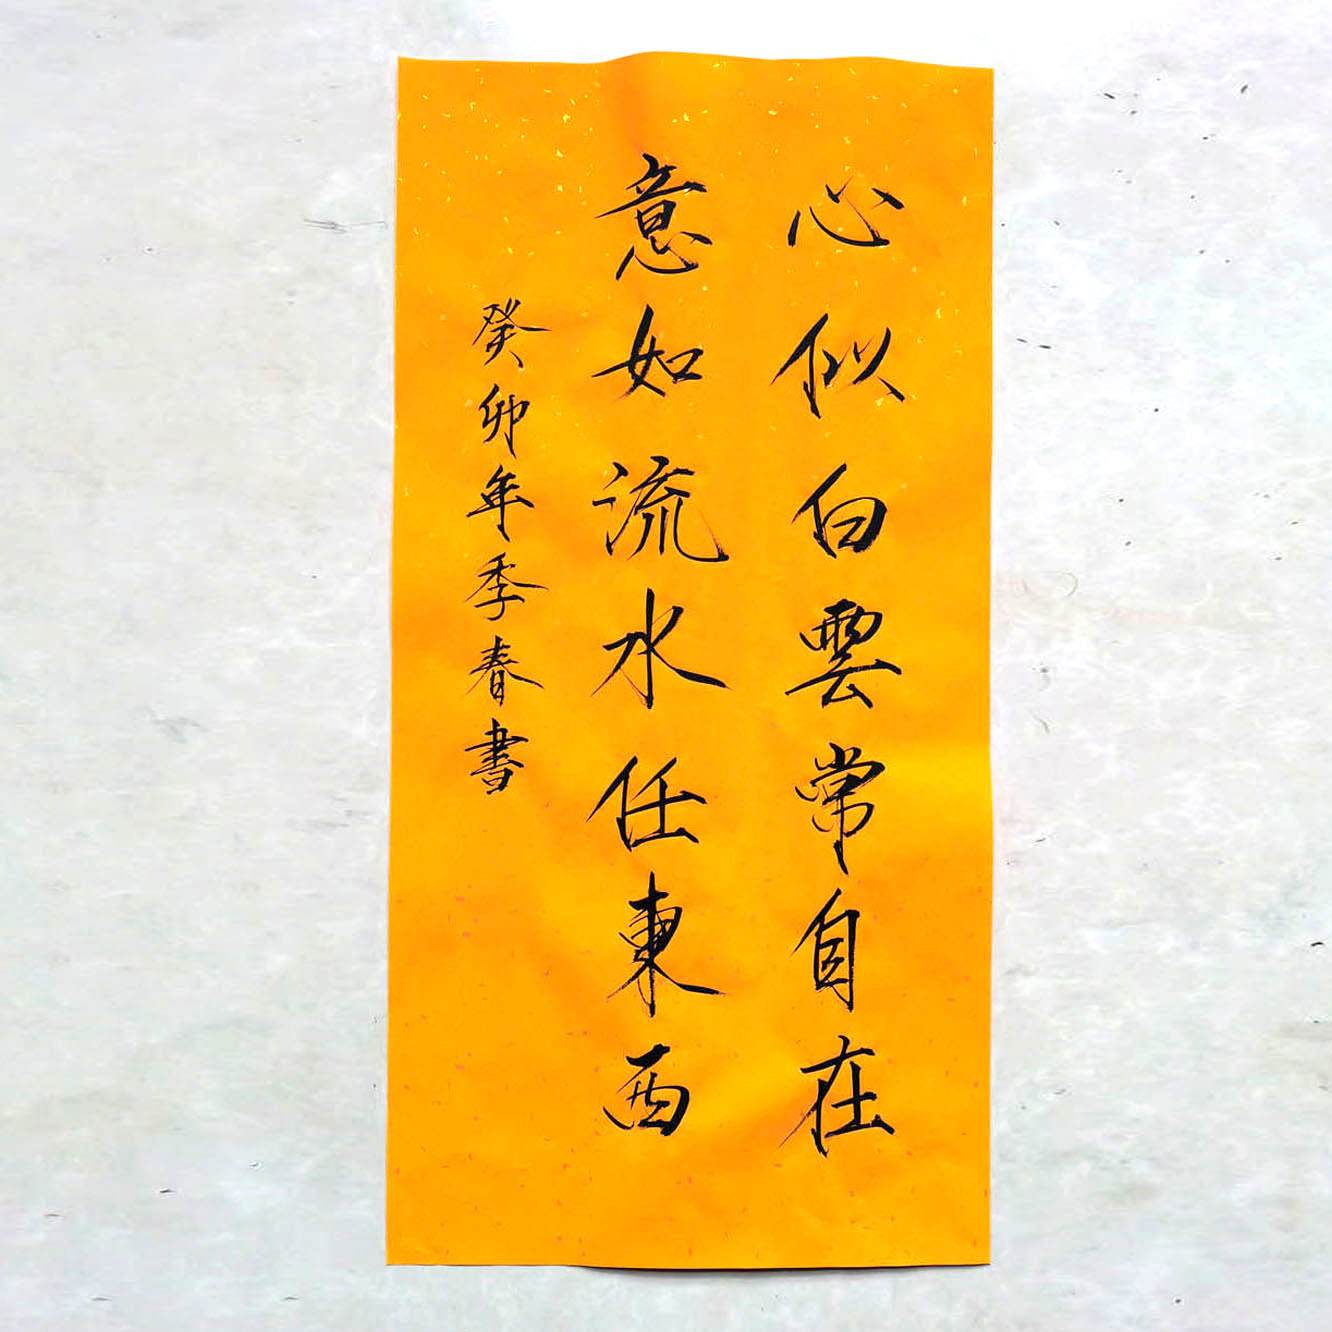 心似白雲常自在
意如流水任東西
癸卯年季春書